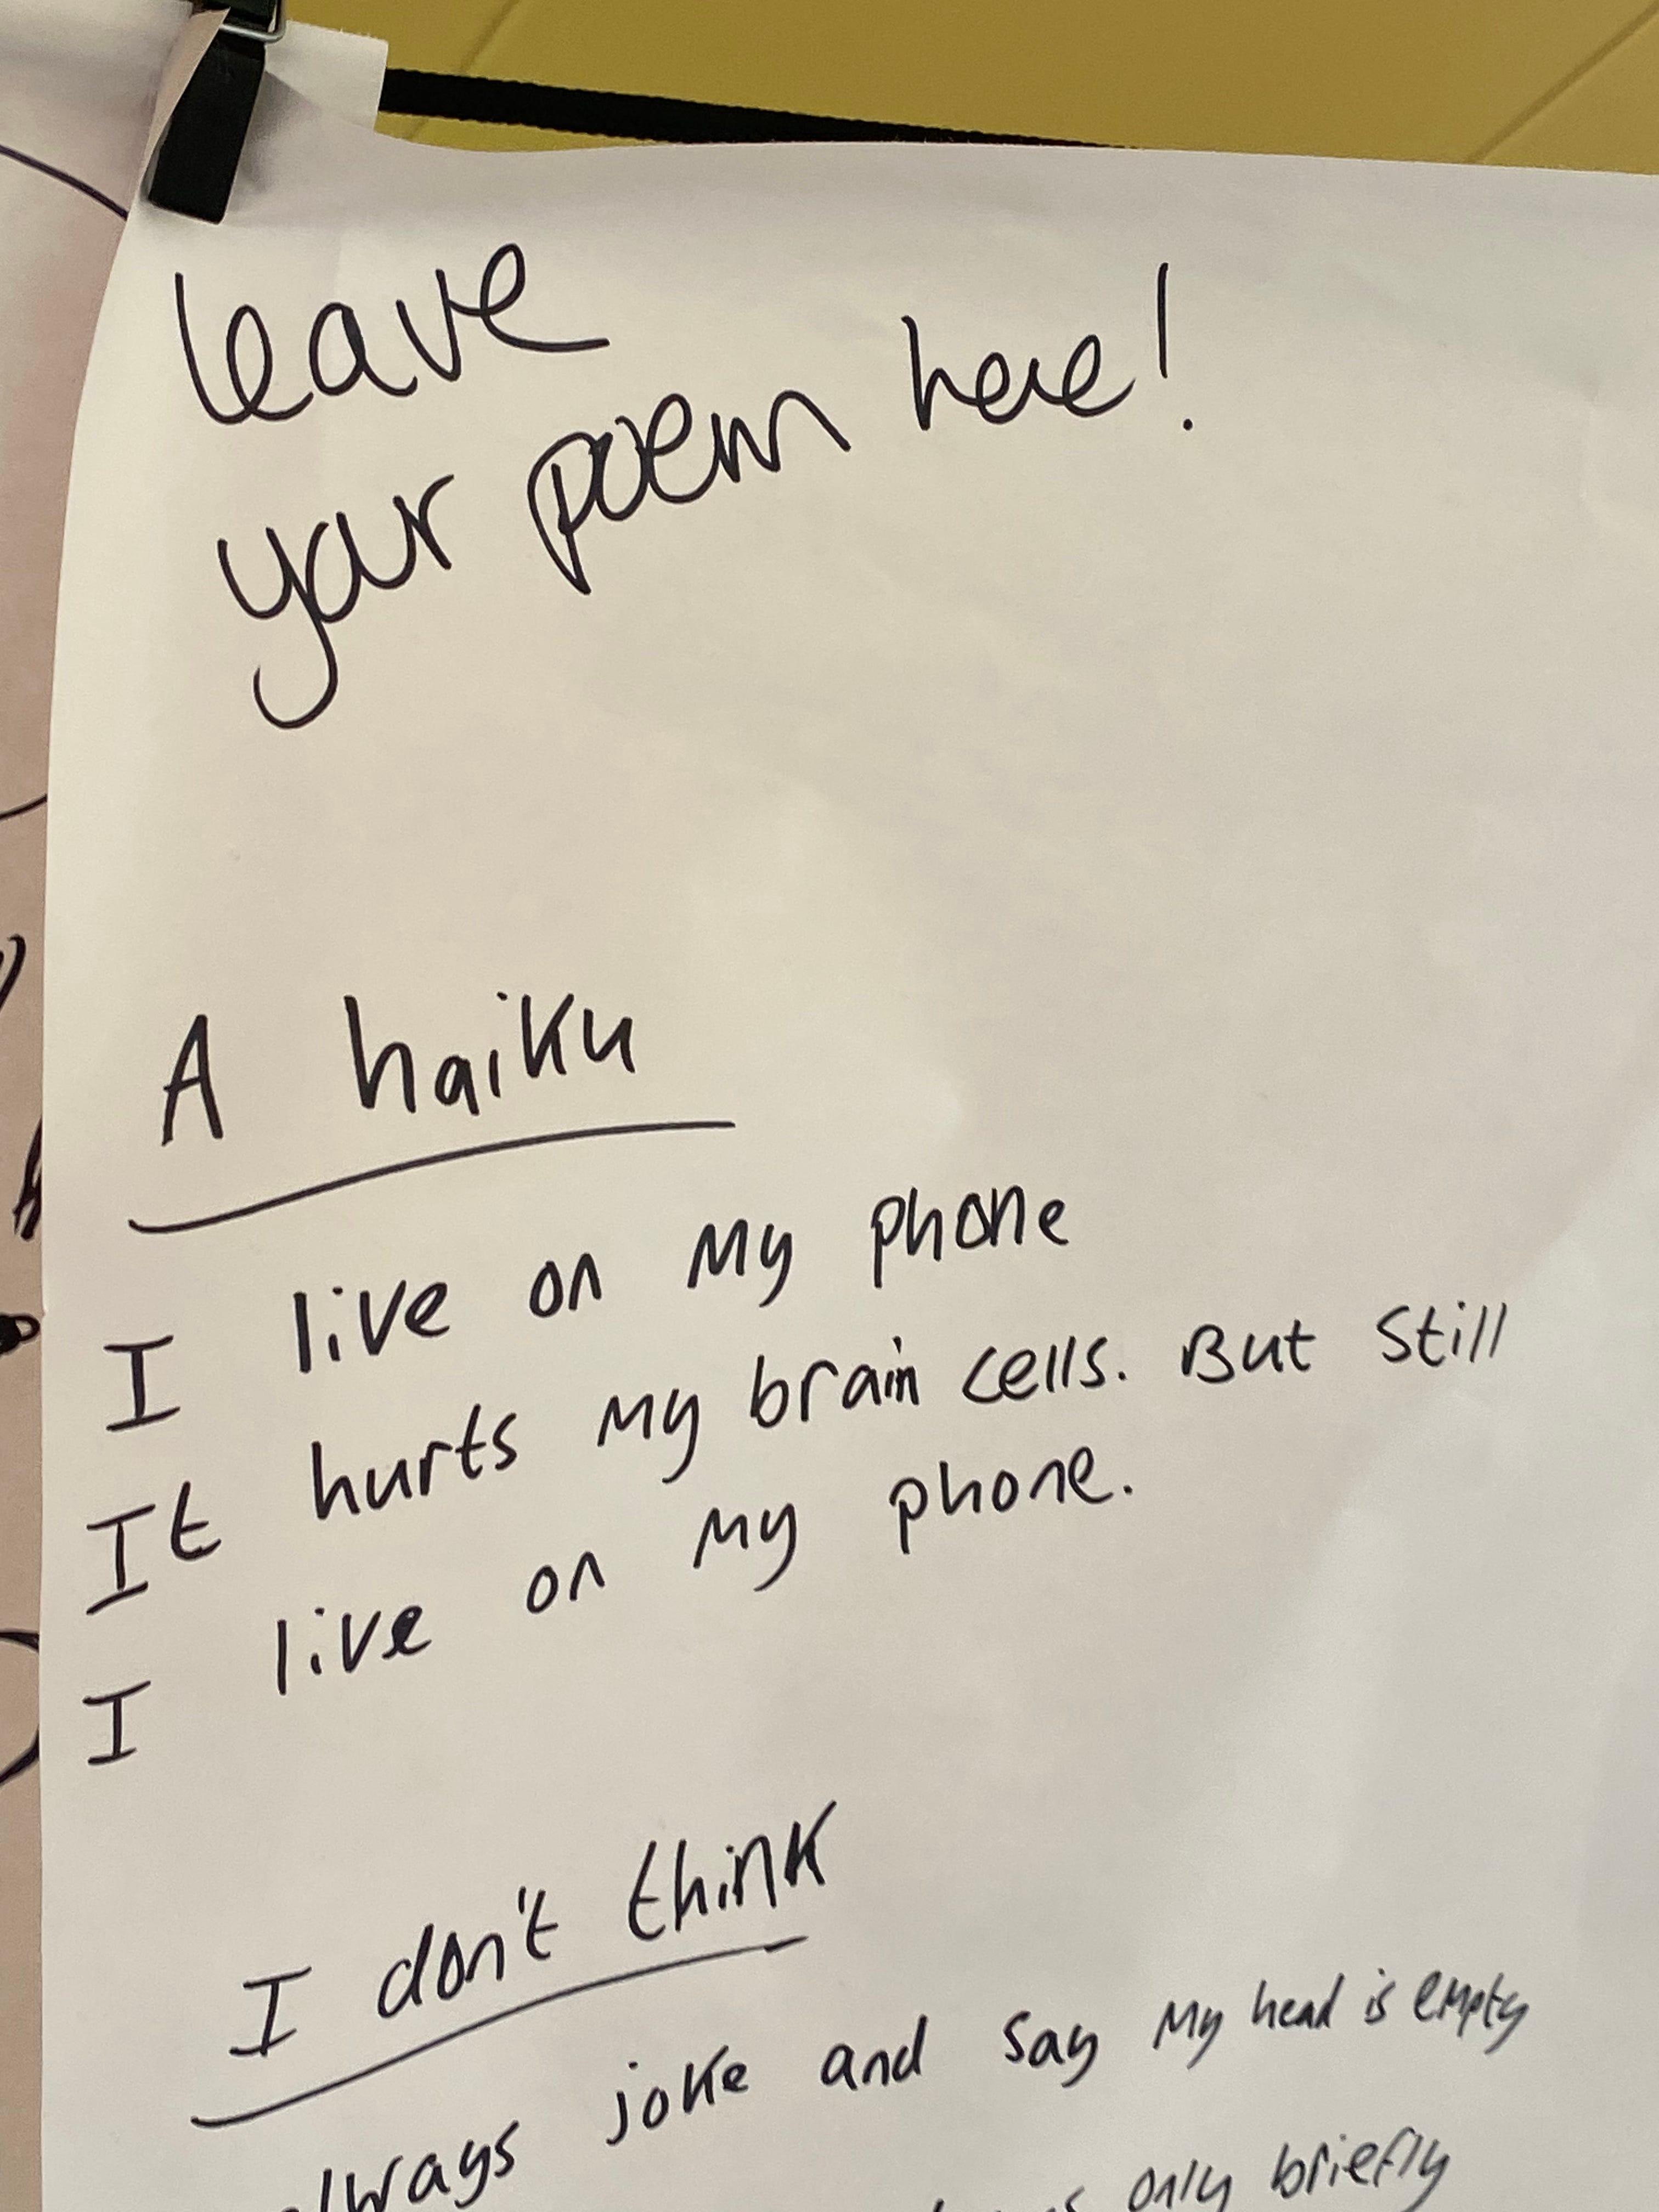 leave
your poem here!
A haiku
I live on my phone
It hurts my brain cells. But still
I live on my phone.
I don't think
always joke and say my head is empty
only briefly